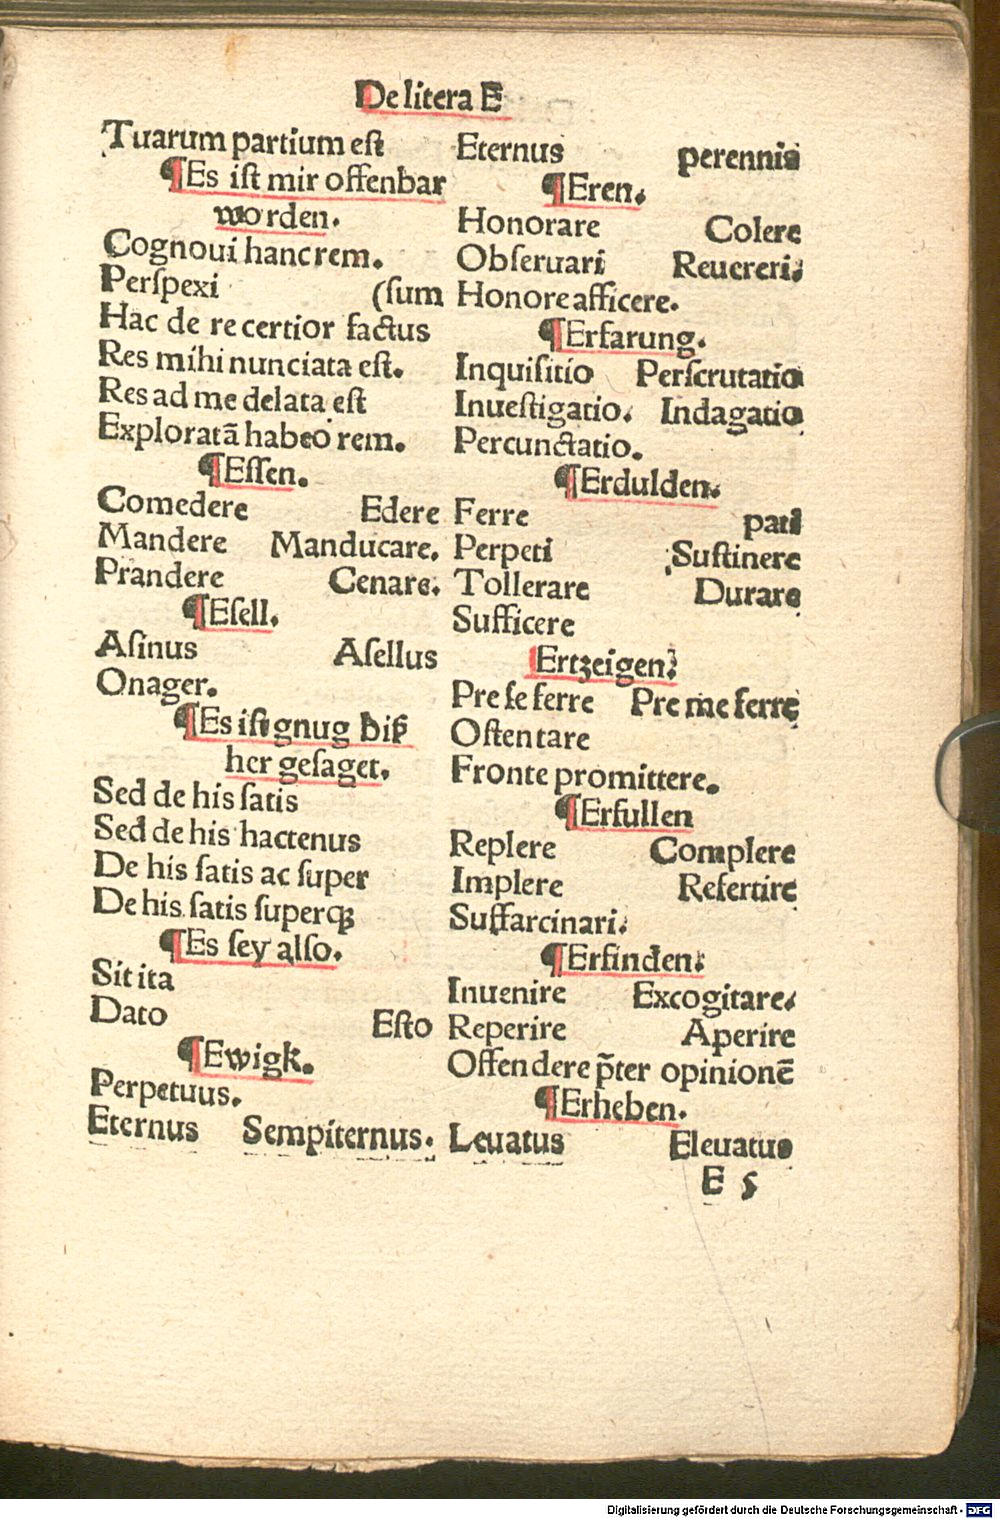 De litera E
Tuarum partium est
¶Es ist mir offenbar
worden.
Cognoui hanc rem.
Perspexi (sum
Hac de re certior factus
Res mihi nunciata est.
Res ad me delata est
Exploratã habeo rem.
¶Essen.
Comedere Edere
Mandere Manducare.
Prandere Cenare.
¶Esell.
Asinus Asellus
Onager.
¶Es ist gnug biß
her gesaget.
Sed de his satis
Sed de his hactenus
De his satis ac super
De his satis superqꝫ
¶Es sey also.
Sit ita
Dato Esto
¶Ewigk.
Perpetuus.
Eternus Sempiternus.
Eternus perennis
¶Eren.
Honorare Colere
Obseruari Reuereri.
Honore afficere.
¶Erfarung.
Inquisitio Perscrutatio
Inuestigatio. Indagatio
Percunctatio.
¶Erdulden.
Ferre pati
Perpeti Sustinere
Tollerare Durare
Sufficere
Ertzeigen.
Pre se ferre Pre me ferre
Ostentare
Fronte promittere.
¶Erfullen
Replere Complere
Implere Refertire
Suffarcinari.
¶Erfinden.
Inuenire Excogitare.
Reperire Aperire
Offendere p̃ter opinionẽ
¶Erheben.
Leuatus Eleuatus
E 5
Digitalisierung gefördert durch die Deutsche Forschungsgemeinschaft - DFG